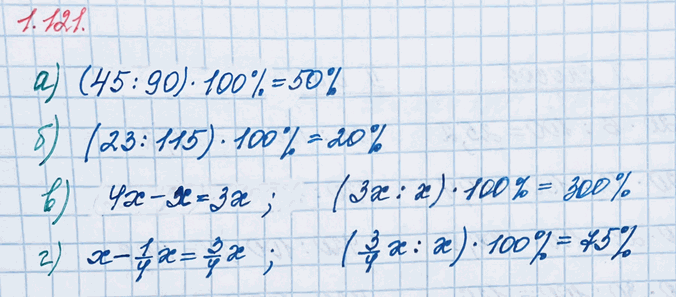 1.121.
а) (45:90)·100%=50%
б) (23:115)·100%=20%
в) 4x-x=3x; (3x:x)·100%=300%
г) x-1/4x=3/4x; (3/4x:x)·100%=75%